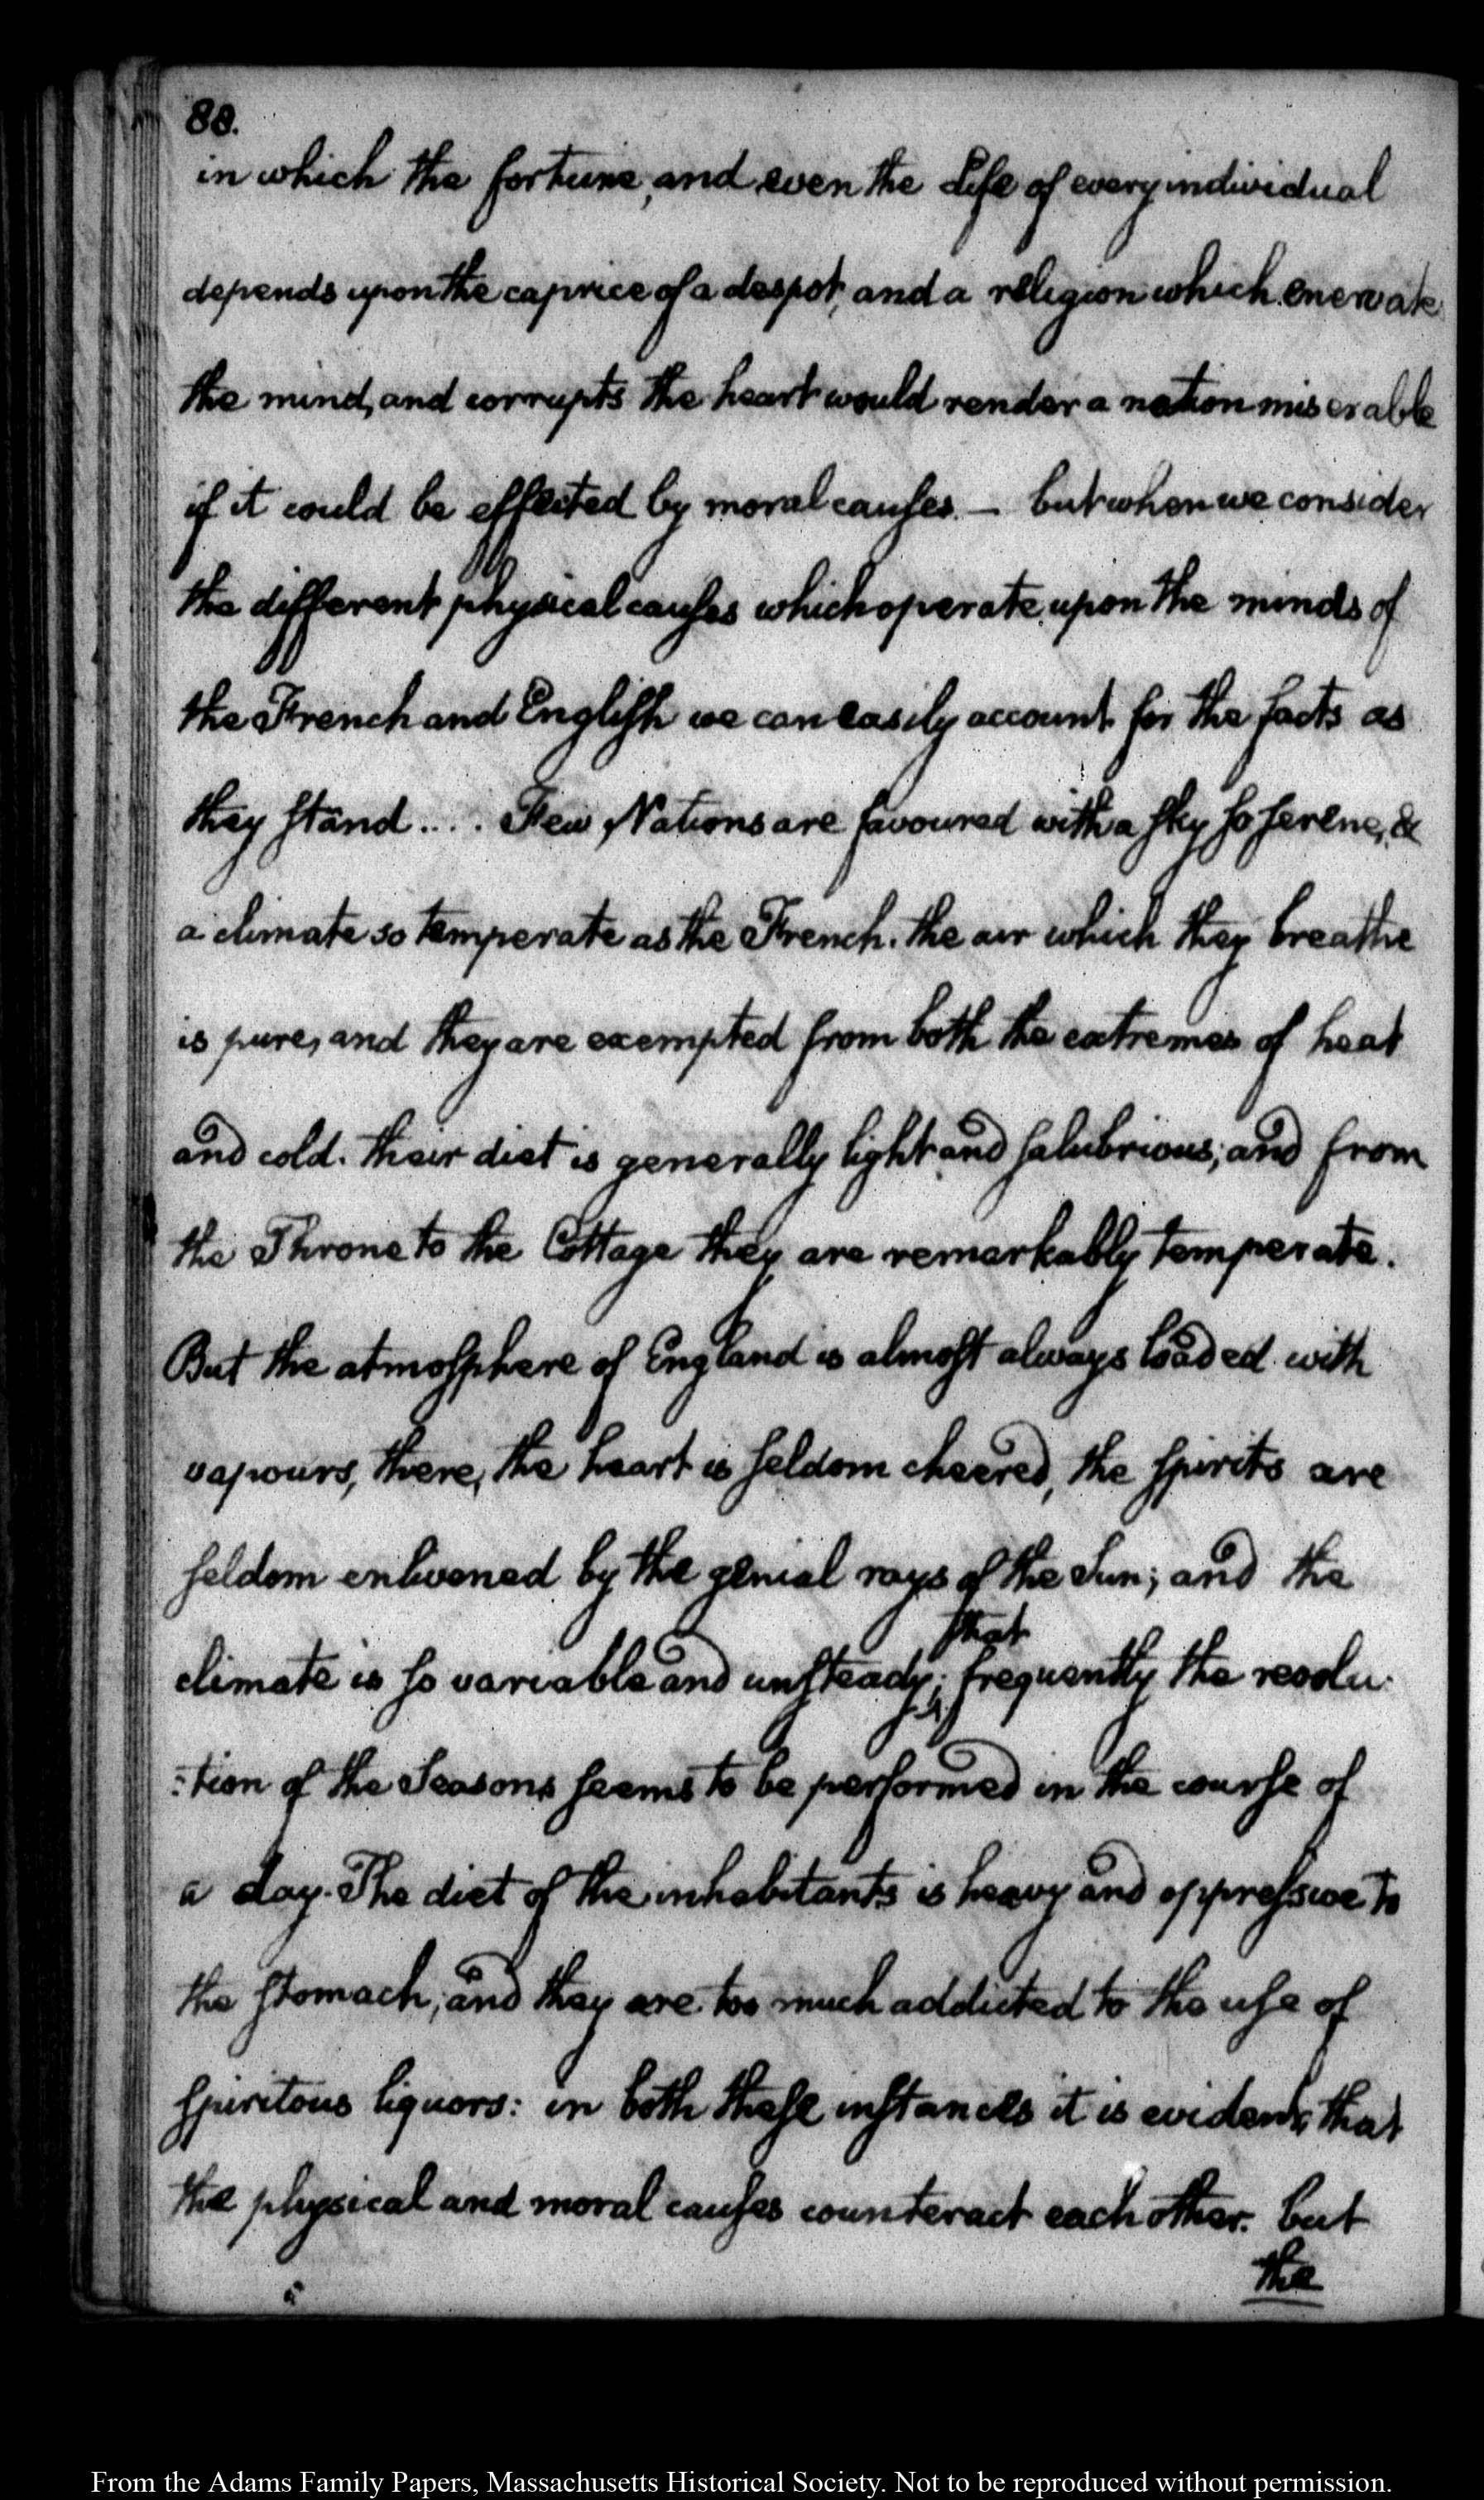 88.
in which the fortune, and even the Life of every individual
depends upon the caprice of a despot, and a religion which enervate
the mind, and corrupts the heart would render a nation miserable
if it could be effected by moral causes. — but when we consider
the different physical causes which operate upon the minds of
the French and English we can easily account for the facts as
they stand.... Few Nations are favoured with a sky so serene, &
a climate so temperate as the French. the air which they breathe
is pure, and they are exempted from both the extremes of heat
and cold. their diet is generally light and salubrious; and from
the Throne to the Cottage they are remarkably temperate.
But the atmosphere of England is almost always loaded with
vapours, there, the heart is seldom cheered, the spirits are
seldom enlivened by the genial rays of the Sun; and the
that
climate is so variable and unsteady; frequently the revolu-
:tion of the Seasons seems to be performed in the course of
a day. The diet of the inhabitants is heavy and oppressive to
the stomach, and they are too much addicted to the use of
spiritous liquors: in both these instances it is evident, that
the physical and moral causes counteract each other. but
the
From the Adams Family Papers, Massachusetts Historical Society. Not to be reproduced without permission.